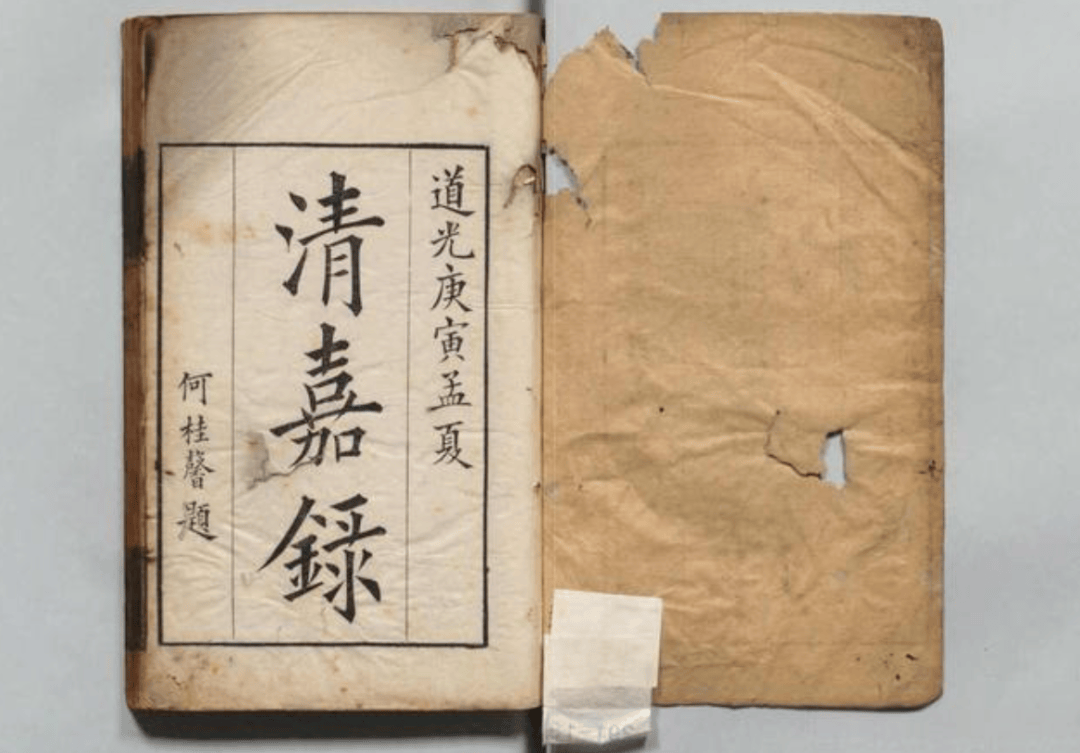 道光庚寅孟夏
清嘉録
何桂馨題